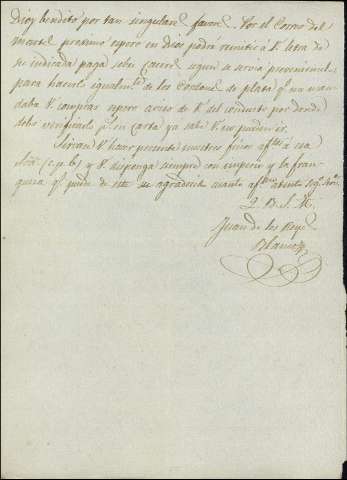 Dios bendito por tan singulares favores. Por el Correo del
martes proximo espero en Dios podre remitir a V. letra de
su indicada paga sobre Caceres segun se sirvio prevenirme
para hacerlo igualmte. de los Cordones de plata qe. me man
daba V. comprar espero aviso de V. del conducto por donde
debo verificarlo ps. en carta ya sabe V. no pueden ir.
Sirvase V. hacer presente nuestros finos aftos. á esa
Sra. (c. p. b.) y V. disponga siempre con imperio y la fran
queza qe. puede de este su agradecido amante afmo. atento Segº. Servr.
Q. B. S. M.
Juan de los Reyes
Blanco